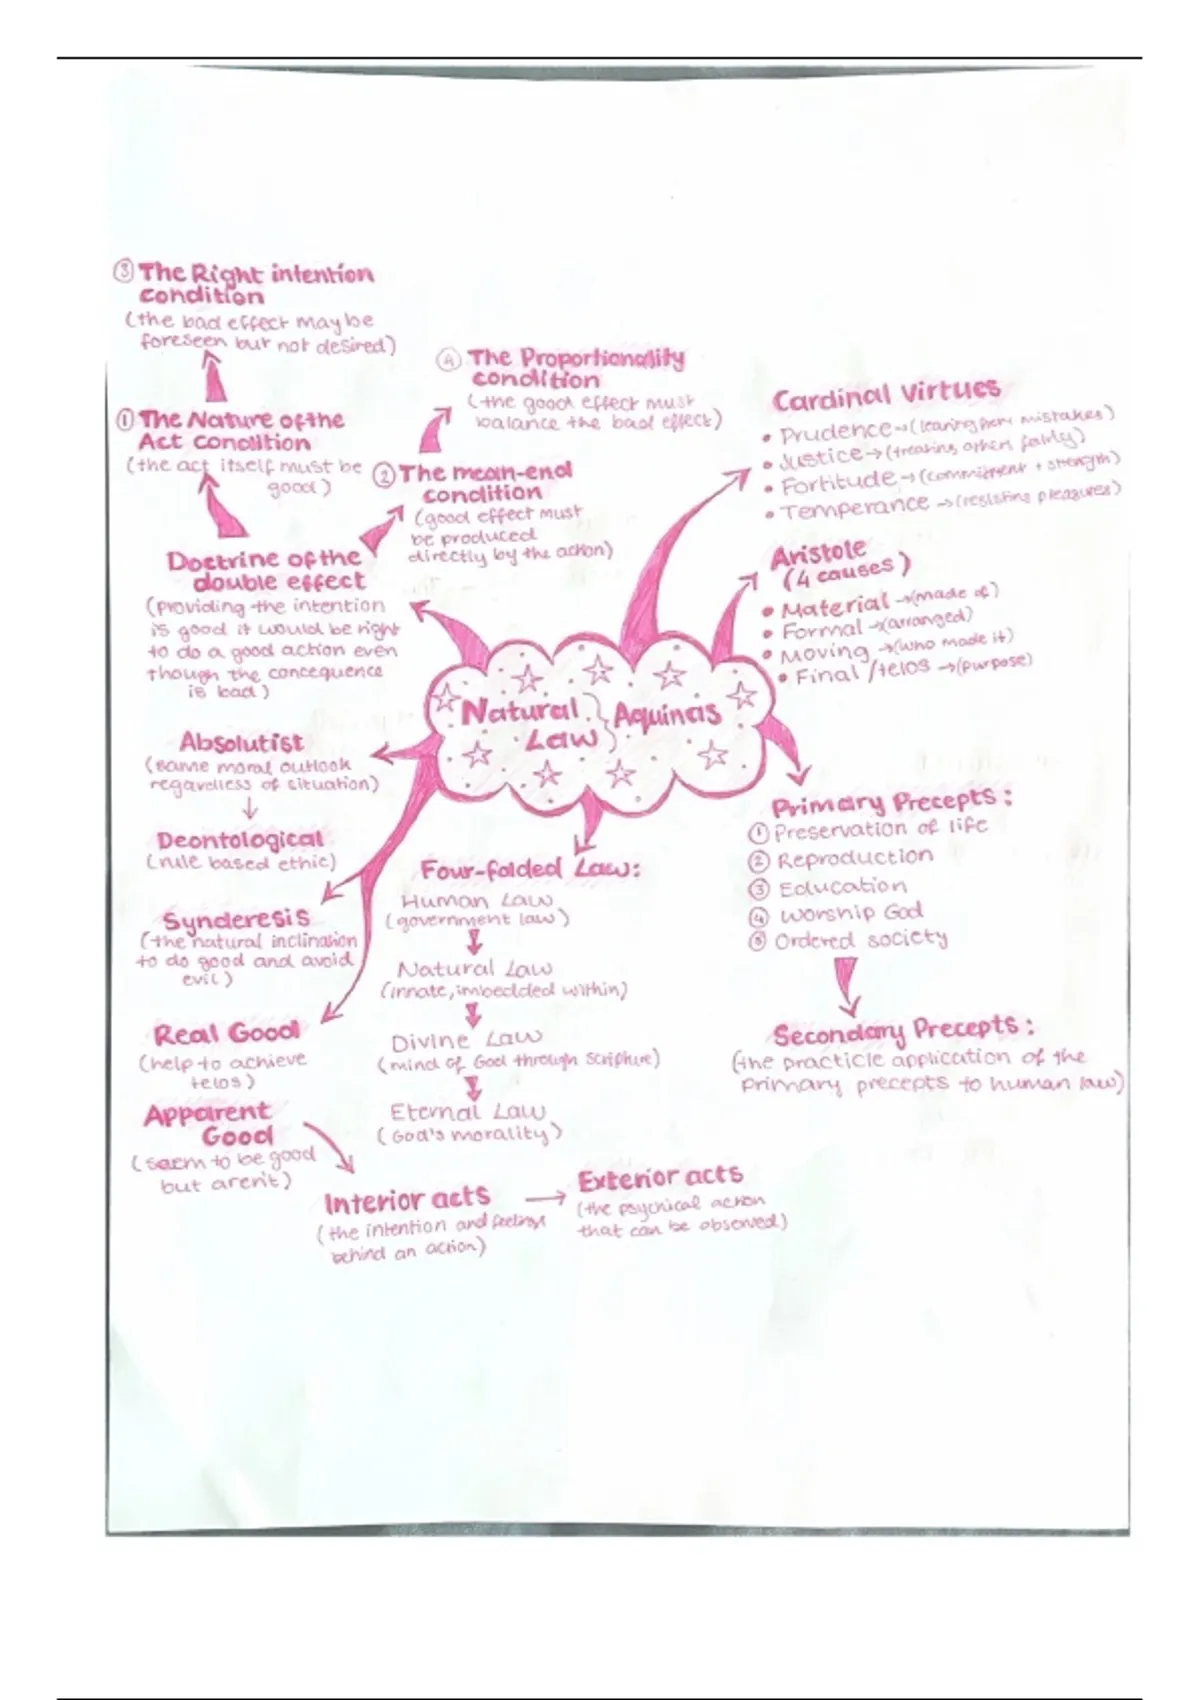 ③ The Right intention
condition
(the bad effect may be
foreseen but not desired)
① The Nature of the
Act condition
(the act itself must be
good)
④ The Proportionality
condition
(the good effect must
balance the bad effect)
② The mean-end
condition
(good effect must
be produced
directly by the action)
Doctrine of the
double effect
(providing the intention
is good it would be right
to do a good action even
though the concequence
is bad)
Cardinal Virtues
• Prudence→(learning from mistakes)
• Justice→(treating others fairly)
• Fortitude→(commitment + strength)
• Temperance→(resisting pleasures)
Aristole
(4 causes)
• Material→(made of)
• Formal→(arranged)
• Moving→(who made it)
• Final/telos→(purpose)
Natural
Law
Aquinas
Absolutist
(same moral outlook
regardless of situation)
Deontological
(rule based ethic)
Synderesis
(the natural inclination
to do good and avoid
evil)
Real Good
(help to achieve
telos)
Apparent
Good
(seem to be good
but aren't)
Interior acts
(the intention and feelings
behind an action)
Exterior acts
(the psychical action
that can be observed)
Four-folded Law:
Human Law
(government law)
Natural Law
(innate, imbedded within)
Divine Law
(mind of God through Scripture)
Eternal Law
(God's morality)
Primary Precepts:
① Preservation of life
② Reproduction
③ Education
④ Worship God
⑤ Ordered society
Secondary Precepts:
(the practicle application of the
primary precepts to human law)